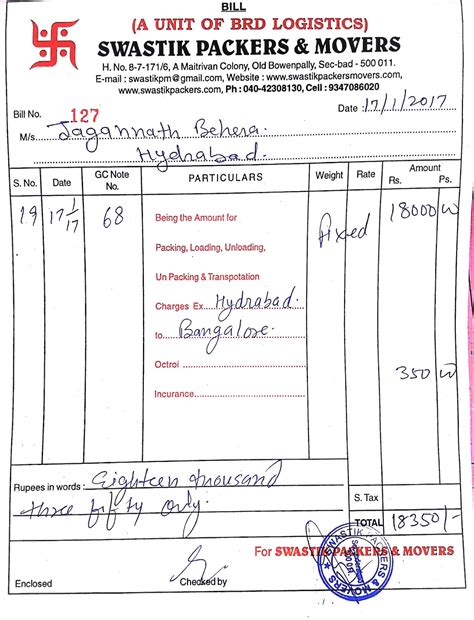 BILL
(A UNIT OF BRD LOGISTICS)
SWASTIK PACKERS & MOVERS
H. No. 8-7-171/6, A Maitrivan Colony, Old Bowenpally, Sec-bad - 500 011.
E-mail : swastikpm@gmail.com, Website : www.swastikpackersmovers.com,
www.swastikpackers.com, Ph : 040-42308130, Cell : 9347086020
Bill No. 127 Date : 17/1/2017
M/s Jagannath Behera.
Hydrabad.
S. No. Date GC Note No. PARTICULARS Weight Rate Amount Rs. Ps.
19 17/1/17 68 Being the Amount for fixed 18000
Packing, Loading, Unloading,
Un Packing & Transpotation
Charges Ex Hydrabad.
to Bangalore.
Octroi 350
Insurance
Rupees in words : Eighteen thousand
three fifty only.
S. Tax
TOTAL 18350/-
For SWASTIK PACKERS & MOVERS
SWASTIK PACKERS & MOVERS
Enclosed Checked by